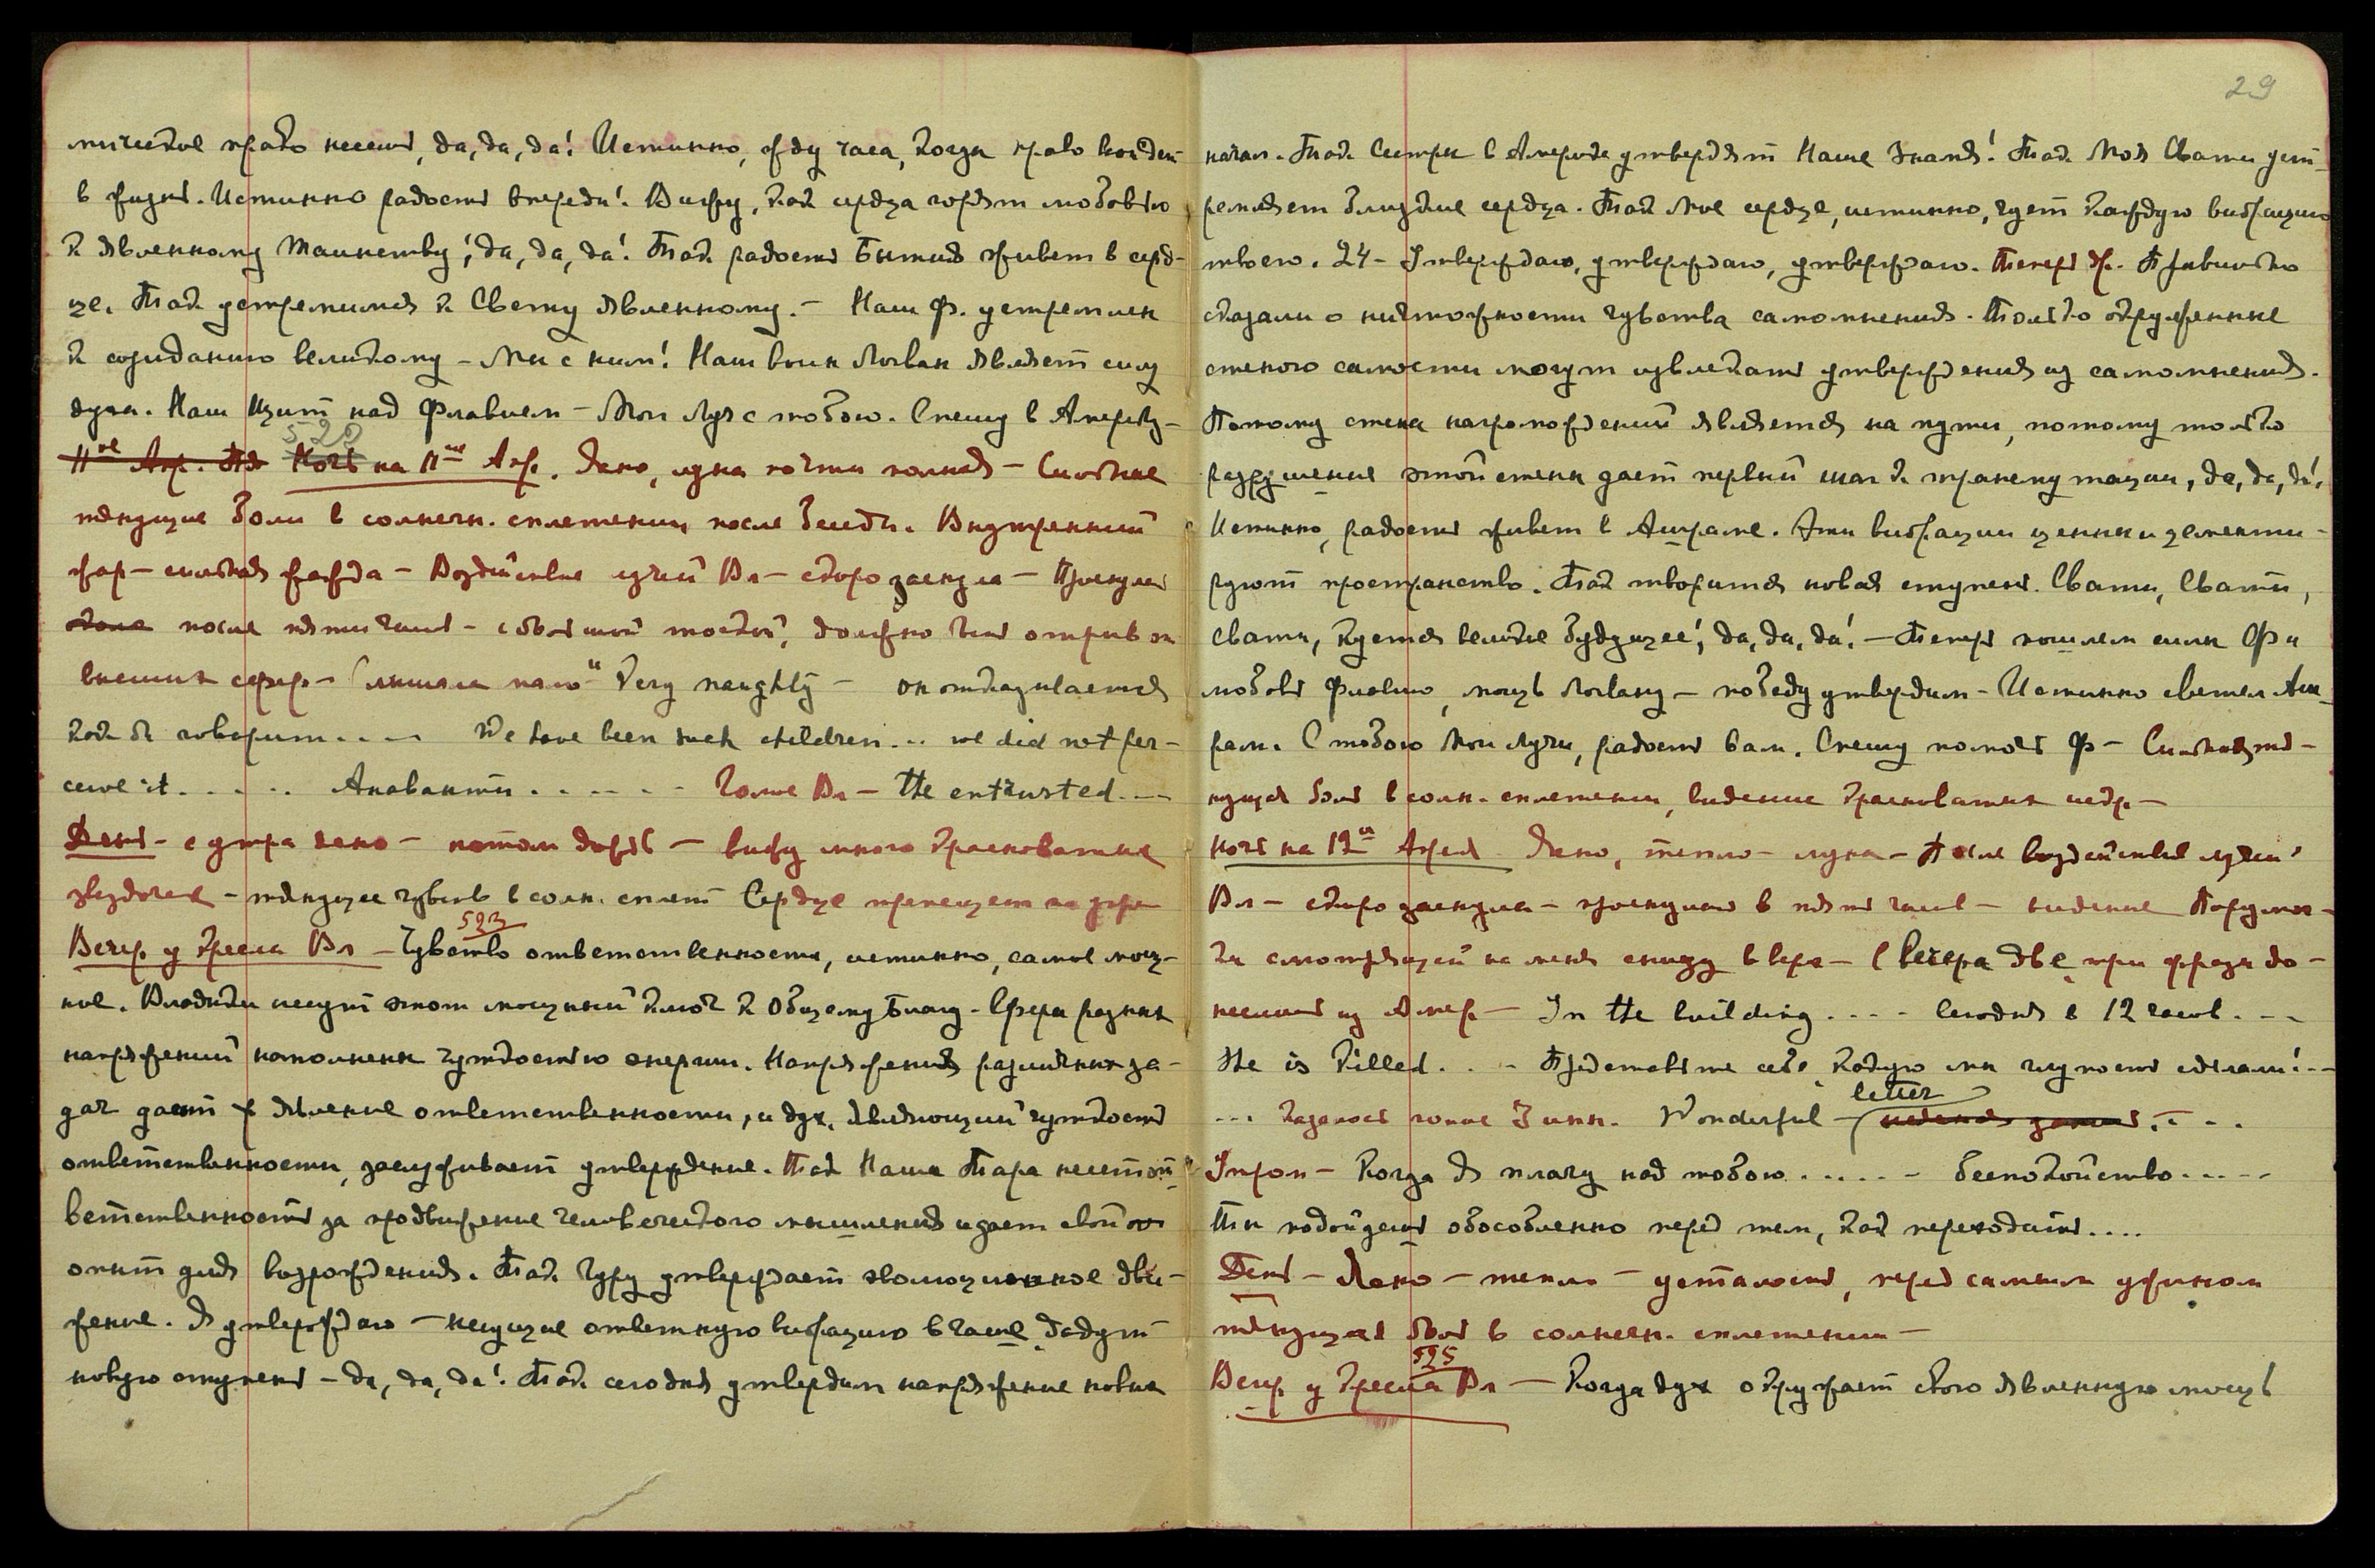 мическое право несешь, да, да, да! Истинно, жду часа, когда право войдет
в жизнь. Истинно радость впереди! Вижу, как сердца горят любовью
к явленному Таинству, да, да, да! Так радость Бытия живет в серд-
це. Так устремимся к Свету явленному. – Наш Ф. устремлен
к созиданию великому – Мы с ним! Наш воин Логван являет силу
духа. Наш Щит над Флавием – Мои Лучи с тобою. Спешу в Америку –
520
11ое Апр. Ночь на 11ое Апр. Ясно, луна почти полная – Сильные
тянущие боли в солнечн. сплетении после беседы. Внутренний
жар – сильная жажда – Воздействие лучей Вл – скоро заснула – Проснулась
после пяти часов – с большой тоской, должно быть отрыв от
высших сфер – Слышала папа "Very naughty – он отказывается
как бы говорит.... We have been such children... we did not per-
ceive it...... Анаванти...... Голос Вл – the entrusted....
День – с утра ясно – потом дождь – вижу много красноватых
звездочек – тянущее чувство в солн. сплет Сердце трепещет
523
Вечер. у кресла Вл – Чувство ответственности, истинно, самое мощ-
ное. Владыки несут этот мощный ключ к Общему Благу. Сфера разных
напряжений наполнена чуткостью энергии. Напряжения различных за-
дач дает явление ответственности, и дух, являющий чуткость
ответственности, заслуживает утверждение. Так Наша Тара несет от-
ветственность за продвижение человеческого мышления и дает свой
опыт для возрождения. Так Гуру утверждает эволюционное дви-
жение. Я утверждаю – несущие ответную вибрацию в Чаше дадут
новую ступень – да, да, да! Так сегодня утвердим напряжение новых
29
начал. Так Сестры в Америке утвердят Наше Знамя! Так Моя Свати уст-
ремляет близкие сердца. Так Мое сердце, истинно, чует каждую вибрацию
твоего. 24 – Утверждаю, утверждаю, утверждаю. Теперь др. Правильно
сказали о ничтожности чувства самомнения. Только окруженные
стеною самости могут извлекать утверждения из самомнения.
Потому стена нагромождений является на пути, потому только
разрушение этой стены дает первый шаг к трансмутации, да, да, да!
Истинно, радость живет в Ашраме. Эти вибрации ценны и цементи-
руют пространство. Так творится новая ступень. Свати, Свати,
Свати, куется великое будущее, да, да, да! – Теперь пошлем силы Ф и
любовь Флавию, мощь Логвану – победу утвердим – Истинно светел Аш-
рам. С тобою Мои Лучи, радость вам. Спешу помочь Ф – Сильная тя-
нущая боль в солн. сплетении, видение красноватых искр –
Ночь на 12ое Апреля Ясно, тепло – луна – После воздействия лучей
Вл – скоро заснула – проснулась в пять часов – видение Порумоч-
ки смотрящей на меня снизу вверх – С вечера две три фразы до-
неслись из Амер – In the building.... Сегодня в 12 часов....
He is killed.... Представьте себе какую мы глупость сделали!...
letter
... казалось голос Зины. Wonderful ....
Утром – Когда я плачу над тобою...... беспокойство.....
Ты подойдешь обособленно перед тем, как переходить....
День – Ясно – тепло – усталость, перед самым ужином
тянущая боль в солнечн. сплетении –
525
Вечер. у кресла Вл – Когда дух окружает свою явленную мощь